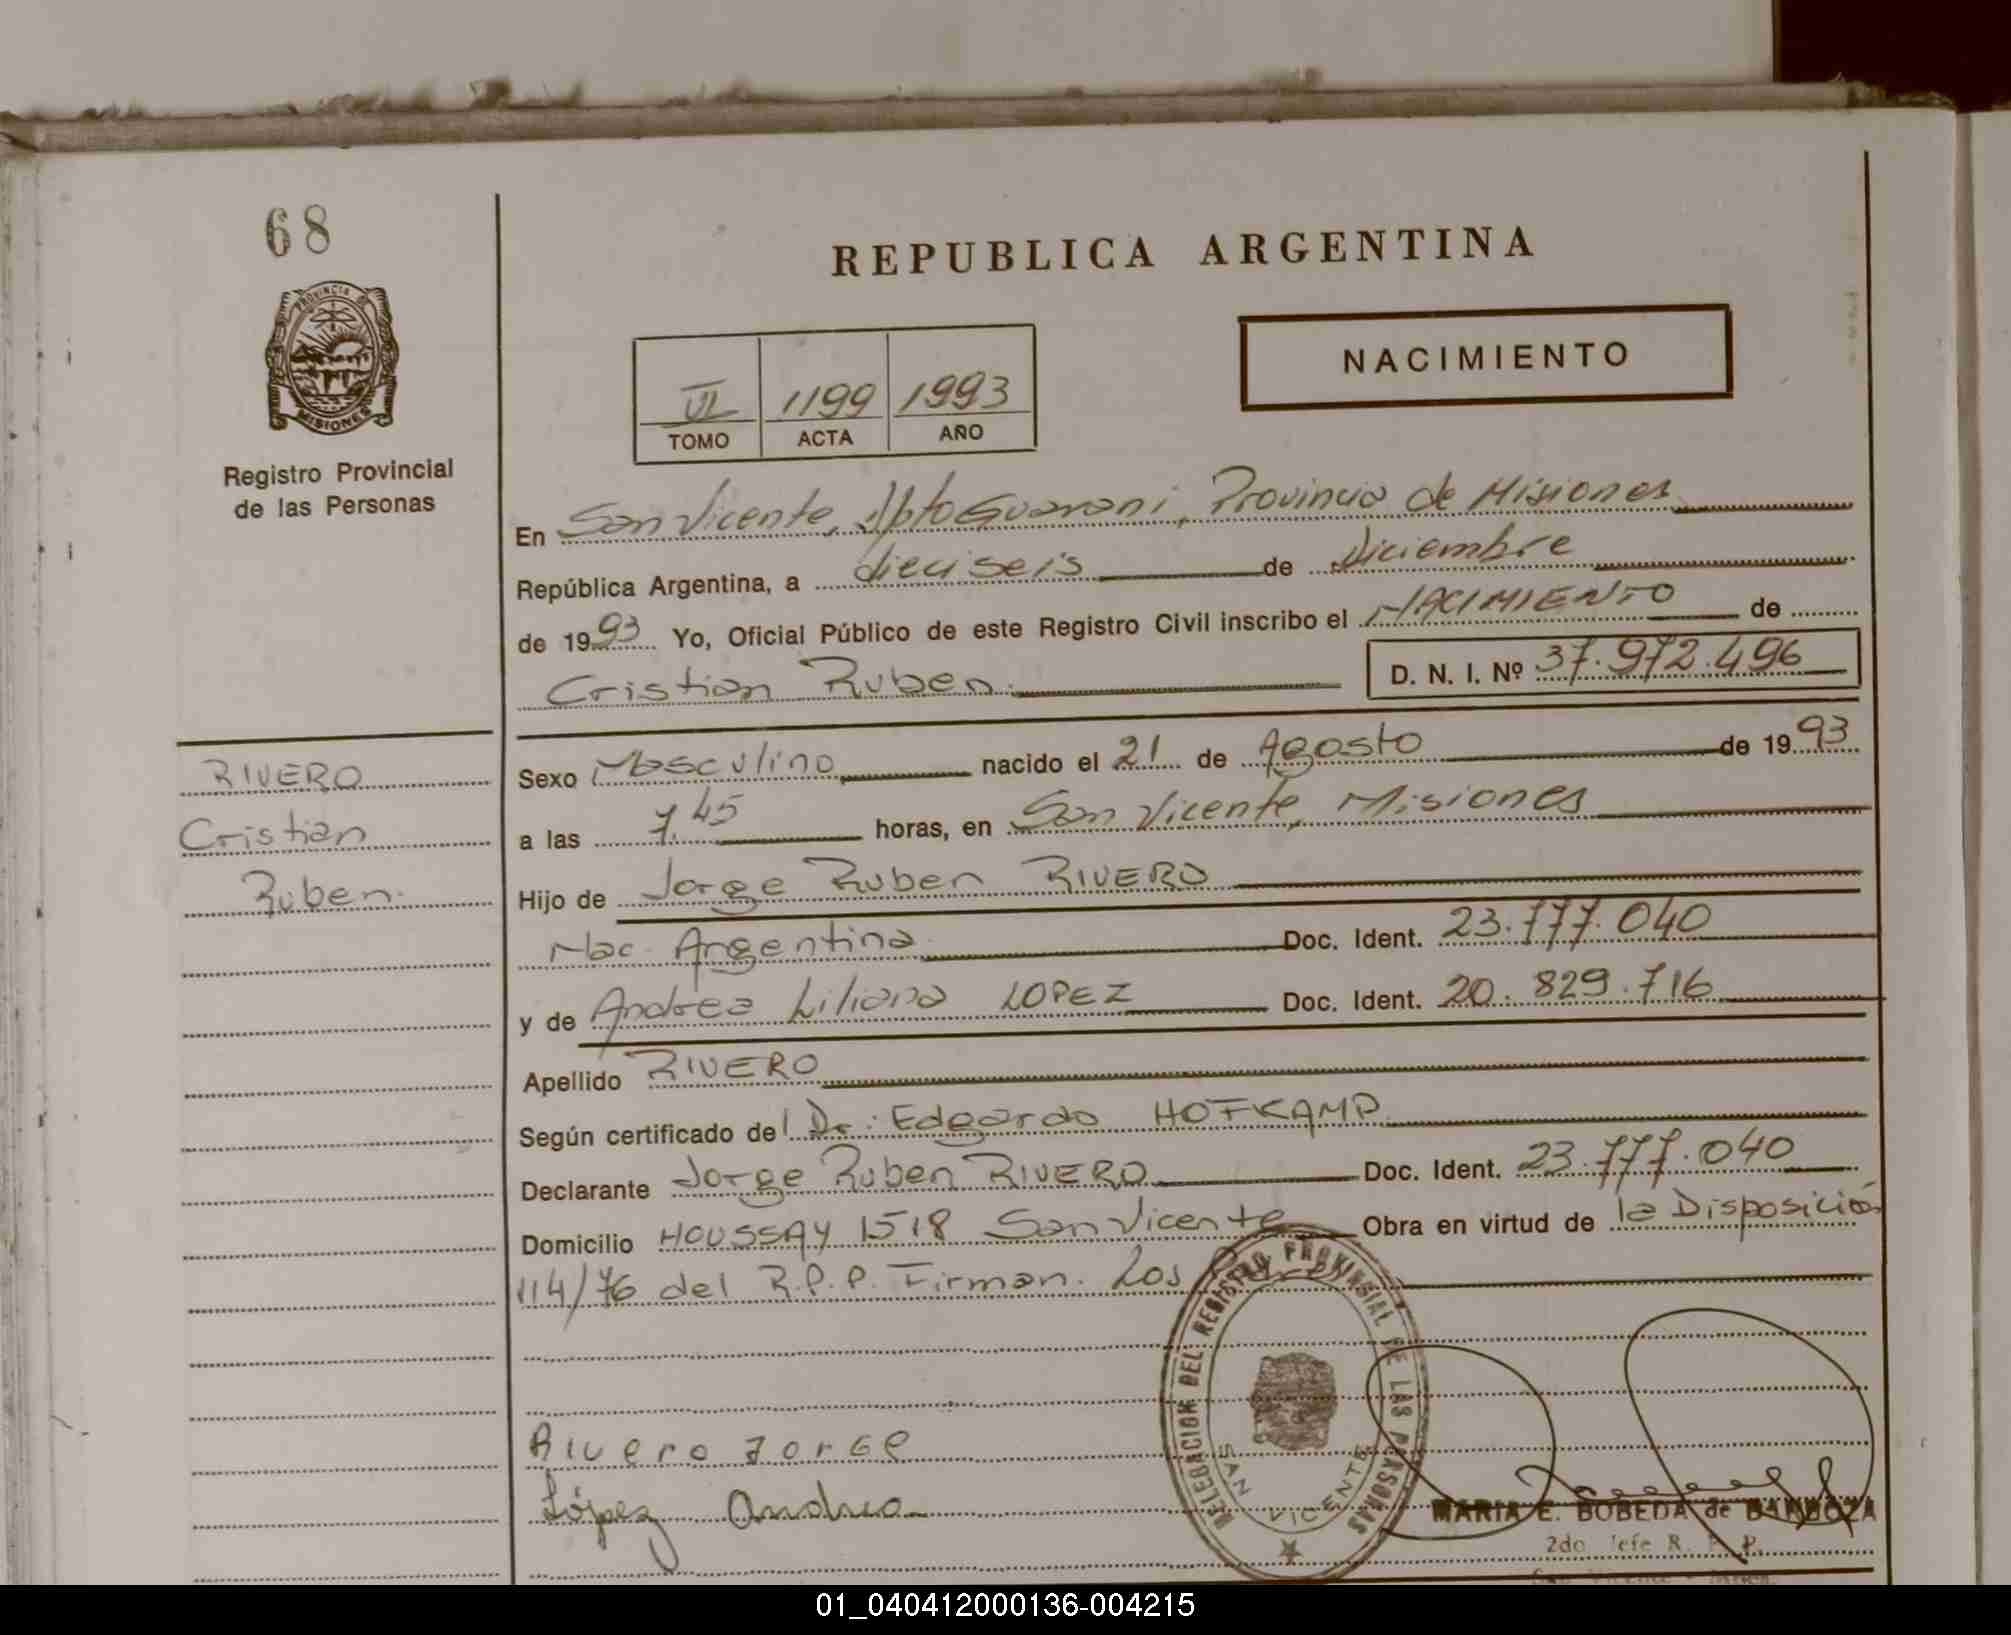 68
PROVINCIA DE
MISIONES
Registro Provincial
de las Personas
REPUBLICA ARGENTINA
NACIMIENTO
VI 1199 1993
TOMO ACTA AÑO
En San Vicente, Dpto Guarani, Provincia de Misiones
República Argentina, a dieciseis de Diciembre
de 1993 Yo, Oficial Público de este Registro Civil inscribo el NACIMIENTO de
Cristian Ruben. D. N. I. Nº 37.972.496
RIVERO
Cristian
Ruben.
Sexo Masculino nacido el 21 de Agosto de 1993
a las 7.45 horas, en San Vicente, Misiones
Hijo de Jorge Ruben RIVERO
Nac. Argentina Doc. Ident. 23.777.040
y de Andrea Liliana LOPEZ Doc. Ident. 20.829.716
Apellido RIVERO
Según certificado del Dr. Edgardo HOFKAMP.
Declarante Jorge Ruben RIVERO Doc. Ident. 23.777.040
Domicilio HOUSSAY 1518 San Vicente Obra en virtud de la Disposición
114/76 del R.P.P. Firman. Los
DELEGACION DEL REGISTRO PROVINCIAL DE LAS PERSONAS
SAN VICENTE
Rivero Jorge
López Andrea
MARIA E. BOBEDA de
2do Jefe R. P. P.
01_040412000136-004215